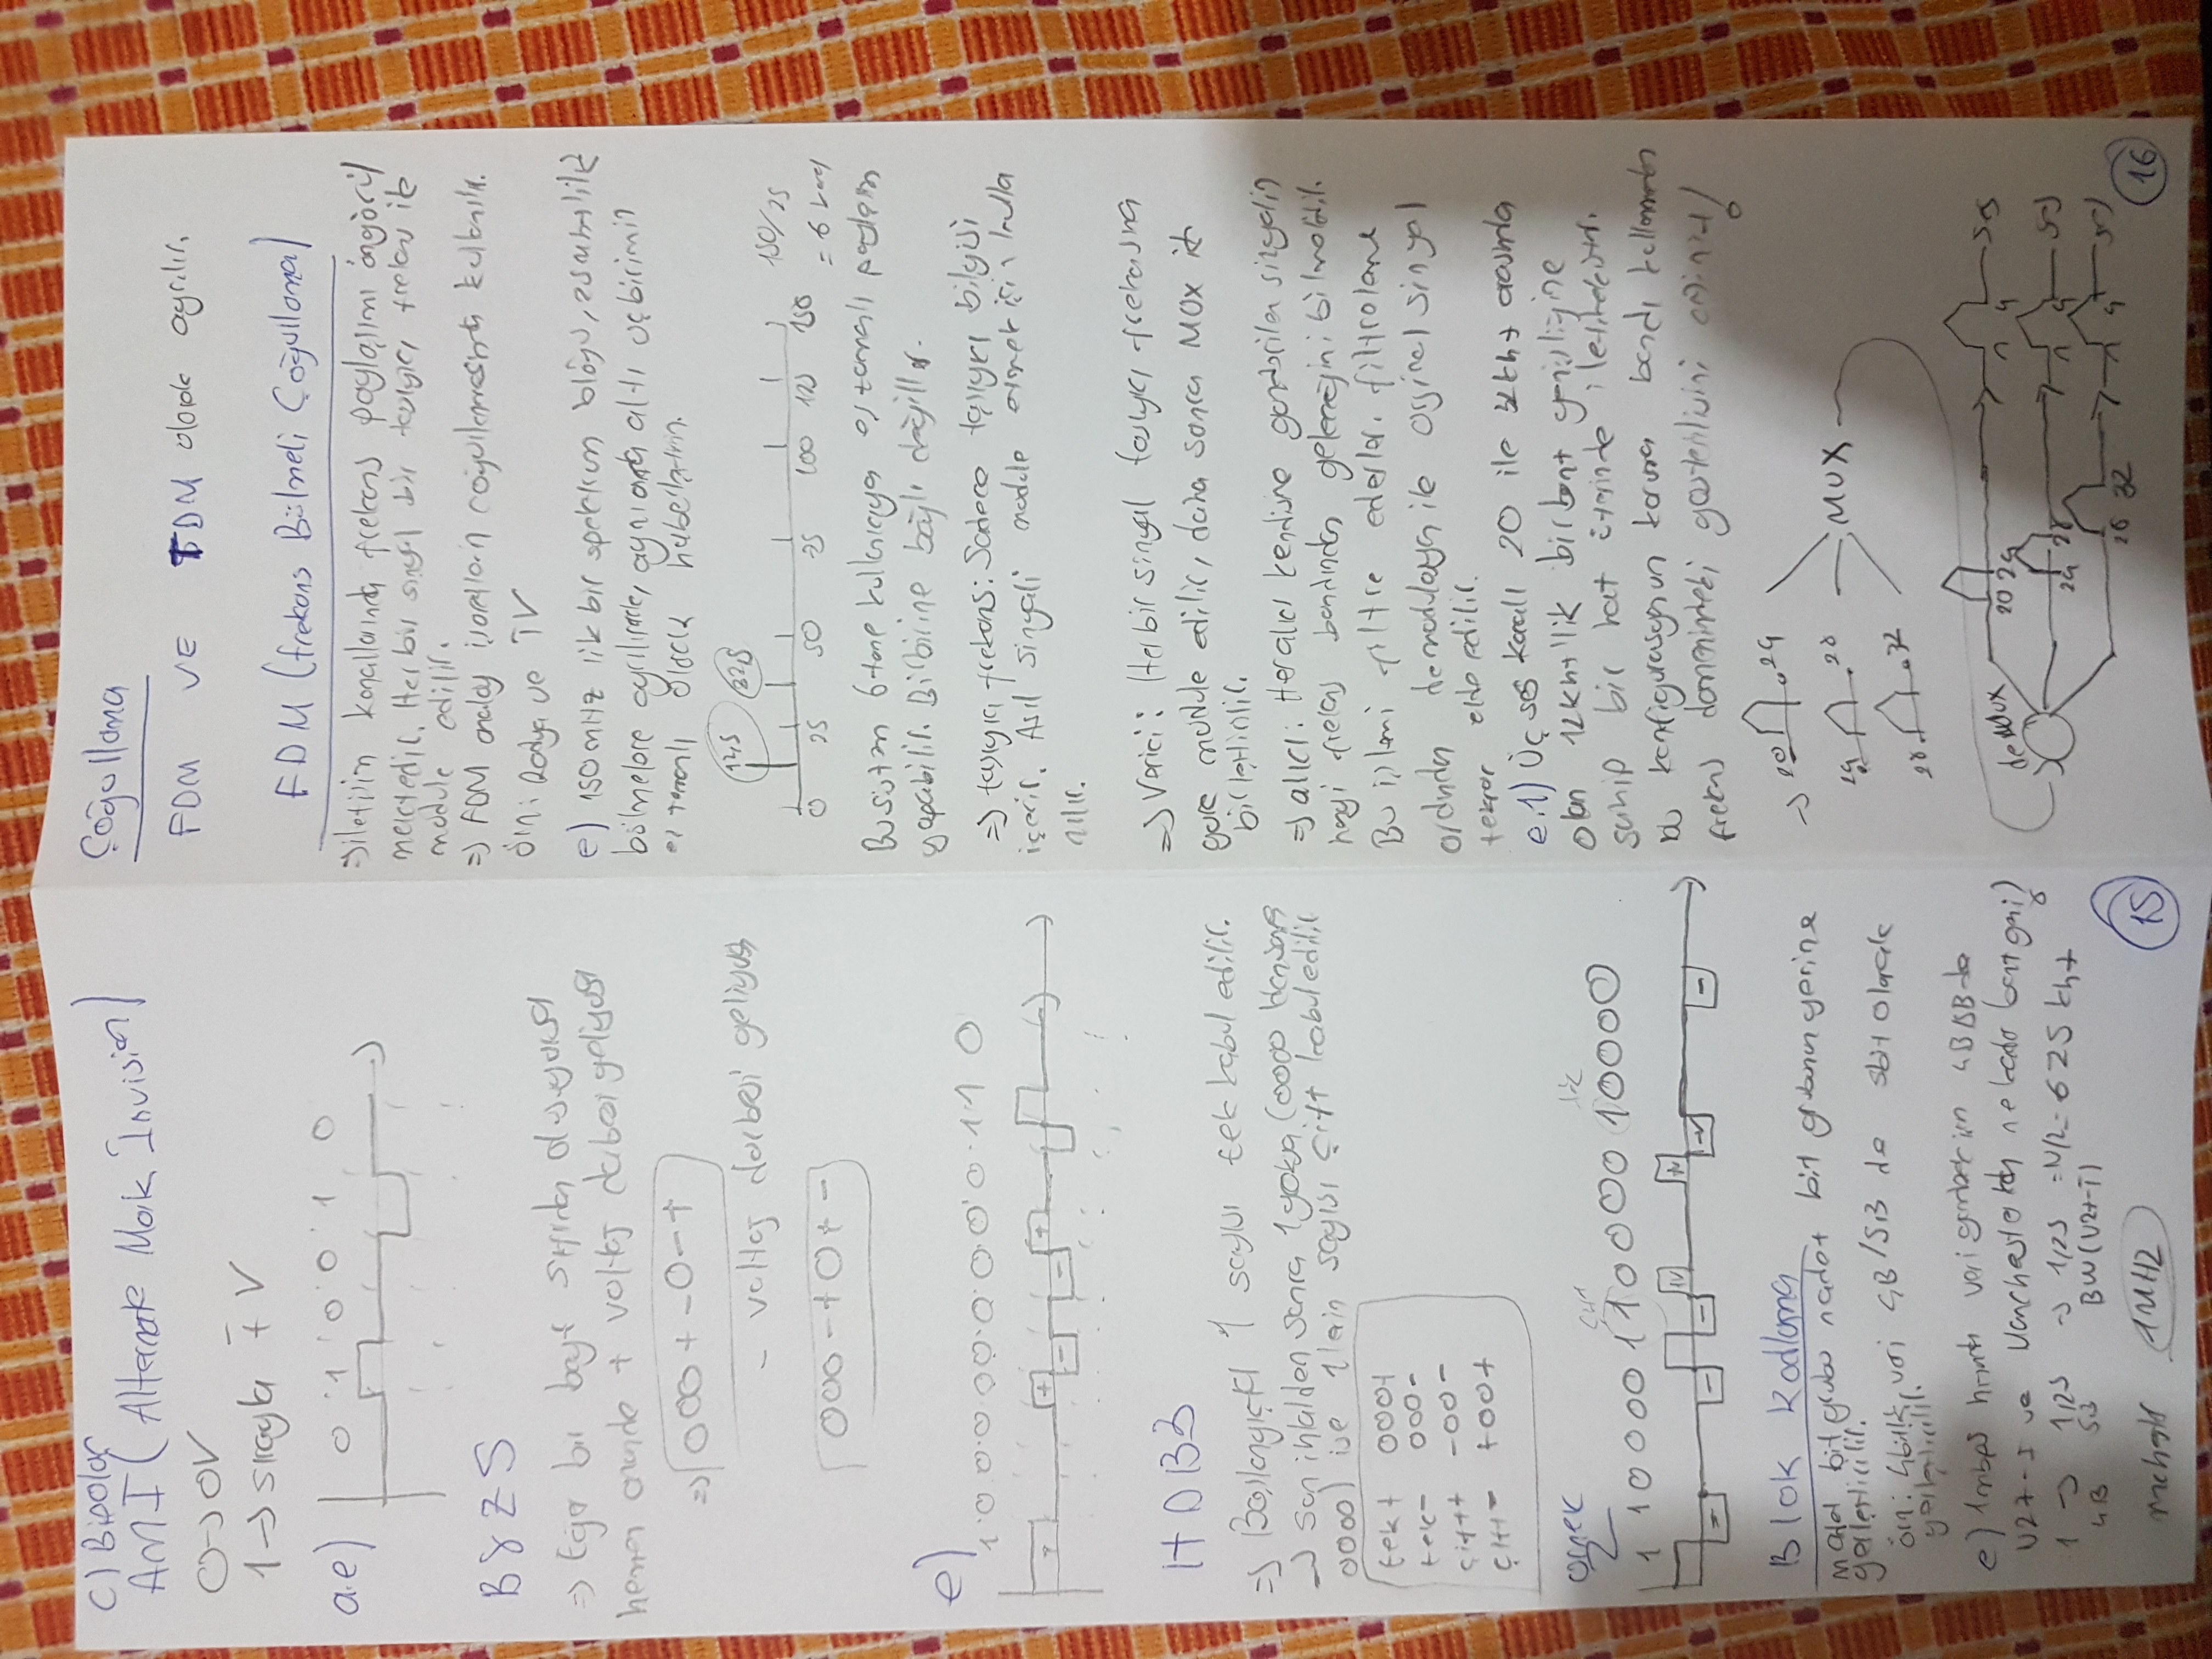 C) Bipolar
AMI (Alternate Mark İnvision)
0→0V
1→ sırayla ∓ V
a.e) 0 1 0 0 1 0
B8ZS
⇒ Eğer bir bayt sıfırdan oluşuyorsa
hemen önünde + voltaj darbesi geliyorsa
⇒ 000+-0-+
- voltaj darbesi geliyorsa
000-+0+-
e)
1 0 0 0 0 0 0 0 0 1 1 0
+ + - - +
HDB3
⇒ Başlangıçta 1 sayısı tek kabul edilir.
→ Son ihlalden sonra 1 yoksa (0000 dan sonra
0000) ise 1 lerin sayısı çift kabul edilir
tek+ 000+
tek- 000-
çift+ -00-
çift- +00+
örnek
çift tek
1 1 0 0 0 0 1 1 0 0 0 0 1 0 0 0 0
- - - +v +v -v -
Blok Kodlama
m adet bit grubu n adet bit grubunun yerine
yerleştirilir.
örn: 4bitlik veri 4B/5B de 5bit olarak
yerleştirilir.
e) 1mbps hızında veri gönderimi 4B5B de
ve Manchester da ne kadar bant geniş?
1 → 1,25 → 1,25 =N/2= 625 khz
4B 5B BW (
1MHZ
15
Çoğullama
FDM VE TDM olarak ayrılır.
FDM (frekans Bölmeli Çoğullama)
⇒iletişim kanallarında frekans paylaşımı öngörül
mektedir. Her bir sinyal bir taşıyıcı frekans ile
module edilir.
⇒ FDM analog işaretlerin çoğullanmasında kullanılır.
örn: Radyo ve TV
e) 150mHz lik bir spektrum bloğu, 25mhz lik
bölmelere ayrılırsa, aynı anda altı uçbirimin
eş zamanlı olarak haberleşir.
12,5 32,5
0 25 50 75 100 125 150
150/25
= 6 kanal
Bu sistem 6 tane kullanıcıya eş zamanlı paylaşım
yapabilir. Birbirine bağlı değiller.
⇒ taşıyıcı frekans: Sadece taşıyıcı bilgisi
içerir. Asıl sinyali module etmek için kulla
nılır.
⇒ Verici: Her bir sinyal taşıyıcı frekansına
göre module edilir, daha sonra MUX ile
birleştirilir.
⇒ alıcı: Her alıcı kendisine gönderilen sinyalin
hangi frekans bandından geleceğini bilmelidir.
Bu işlemi filtre ederler. filtreleme
ardından demodulasyon ile orjinal sinyal
tekrar elde edilir.
e.1) Üç ses kanalı 20 ile 32khz arasında
olan 12khz'lik bir bant genişliğine
sahip bir hat üzerinde iletilecektir.
bu konfigurasyonun koruma bandı kullanmadan
frekans domenindeki gösterilişini çiziniz!
→ 20 24
24 28
28 32
MUX
deMux
20 24 0 4 ses
24 28 0 4 ses
28 32 0 4 ses
16